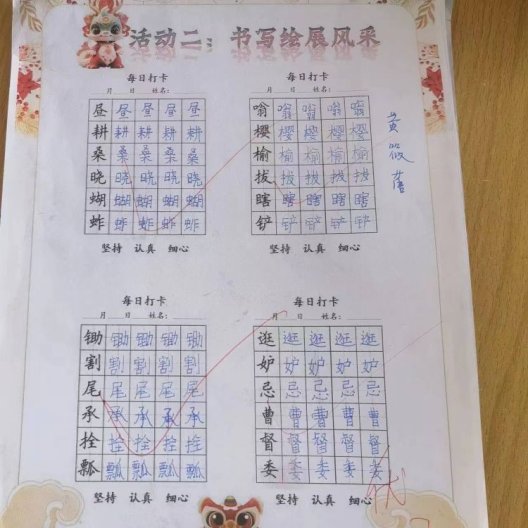 活动二：书写绘展风采
每日打卡
月 日 姓名：
昼 昼 昼 昼 昼
耕 耕 耕 耕 耕
桑 桑 桑 桑 桑
晓 晓 晓 晓 晓
蝴 蝴 蝴 蝴 蝴
蚱 蚱 蚱 蚱 蚱
坚持 认真 细心
每日打卡
月 日 姓名：
嗡 嗡 嗡 嗡 嗡
樱 樱 樱 樱 樱
榆 榆 榆 榆 榆
拔 拔 拔 拔 拔
瞎 瞎 瞎 瞎 瞎
铲 铲 铲 铲 铲
坚持 认真 细心
黄筱
每日打卡
月 日 姓名：
锄 锄 锄 锄 锄
割 割 割 割 割
尾 尾 尾 尾 尾
承 承 承 承 承
拴 拴 拴 拴 拴
瓢 瓢 瓢 瓢 瓢
坚持 认真 细心
每日打卡
月 日 姓名：
逛 逛 逛 逛 逛
妒 妒 妒 妒 妒
忌 忌 忌 忌 忌
曹 曹 曹 曹 曹
督 督 督 督 督
委 委 委 委 委
坚持 认真 细心
优